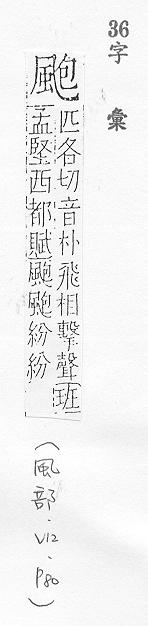 36字彙
颮
匹各切音朴飛相擊聲班
孟堅西都賦颮颮紛紛
（風部．V12．P80）